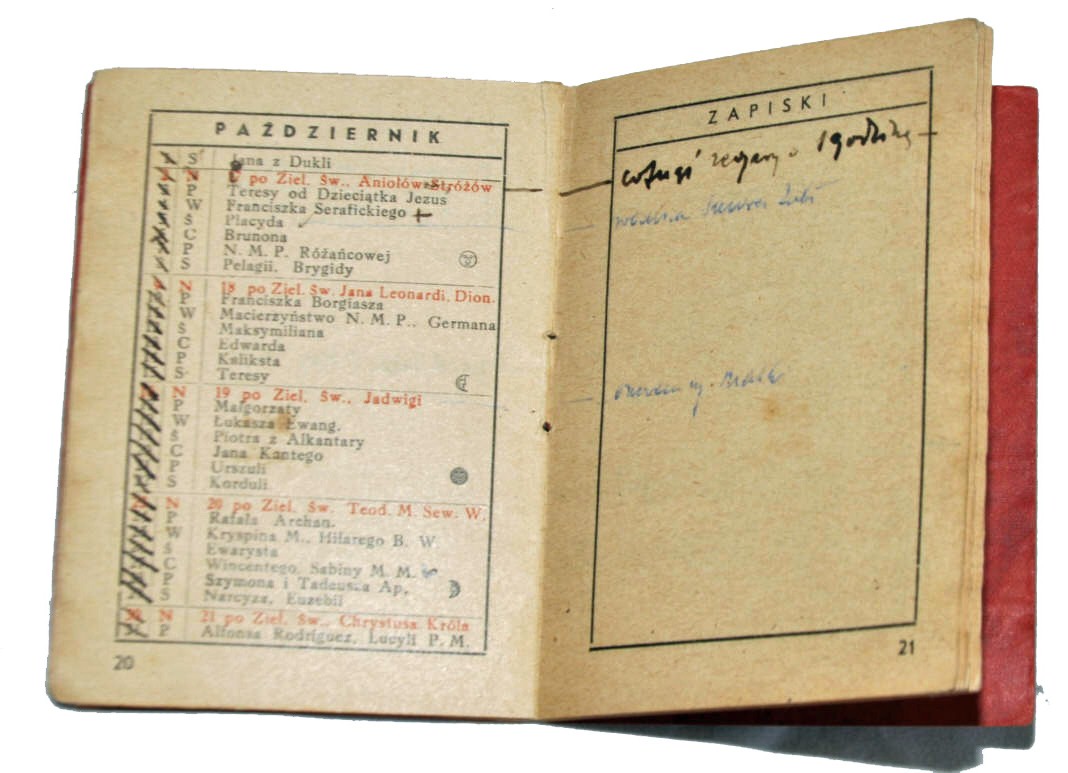 PAŹDZIERNIK
S Jana z Dukli
N po Ziel. Św., Aniołów Stróżów
P Teresy od Dzieciątka Jezus
W Franciszka Serafickiego +
Ś Placyda
C Brunona
P N. M. P. Różańcowej
S Pelagii, Brygidy
N 18 po Ziel. Św. Jana Leonardi, Dion.
P Franciszka Borgiasza
W Macierzyństwo N. M. P., Germana
Ś Maksymiliana
C Edwarda
P Kaliksta
S Teresy
N 19 po Ziel. Św., Jadwigi
P Małgorzaty
W Łukasza Ewang.
Ś Piotra z Alkantary
C Jana Kantego
P Urszuli
S Korduli
N 20 po Ziel. Św. Teod. M. Sew. W.
P Rafała Archan.
W Kryspina M., Hilarego B. W.
Ś Ewarysta
C Wincentego, Sabiny M. M.
P Szymona i Tadeusza Ap.
S Narcyza, Euzebii
30 N 21 po Ziel. Św., Chrystusa Króla
P Alfonsa Rodriguez, Lucyli P. M.
20
ZAPISKI
cofnąć zegary o 1 godzinę
21